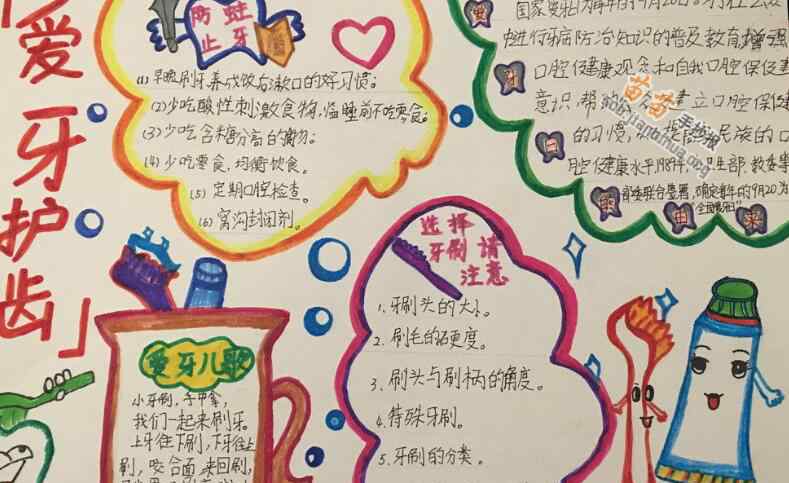 爱牙护齿
防蛀
止牙
(1)早晚刷牙养成饭后漱口的好习惯;
(2)少吃酸性刺激食物,临睡前不吃零食;
(3)少吃含糖分高的食物;
(4)少吃零食,均衡饮食。
(5)定期口腔检查。
(6)窝沟封闭剂。
国家
进行牙病防治知识的普及教育,增强
口腔健康观念和自我口腔保健
意识,帮 建立口腔保健
的习惯, 提高 民族的口
腔健康水平,1989年,卫生部、教委等
部委联合签署,确定每年的9月20为
"全国爱牙日"
爱
牙
日
的
由
来
苗苗手抄报
选择
牙刷请
注意
1、牙刷头的大小。
2、刷毛的硬度。
3、刷头与刷柄的角度。
4、特殊牙刷。
5、牙刷的分类。
爱牙儿歌
小牙刷,手中拿,
我们一起来刷牙。
上牙往下刷,下牙往上
刷,咬合面来回刷,